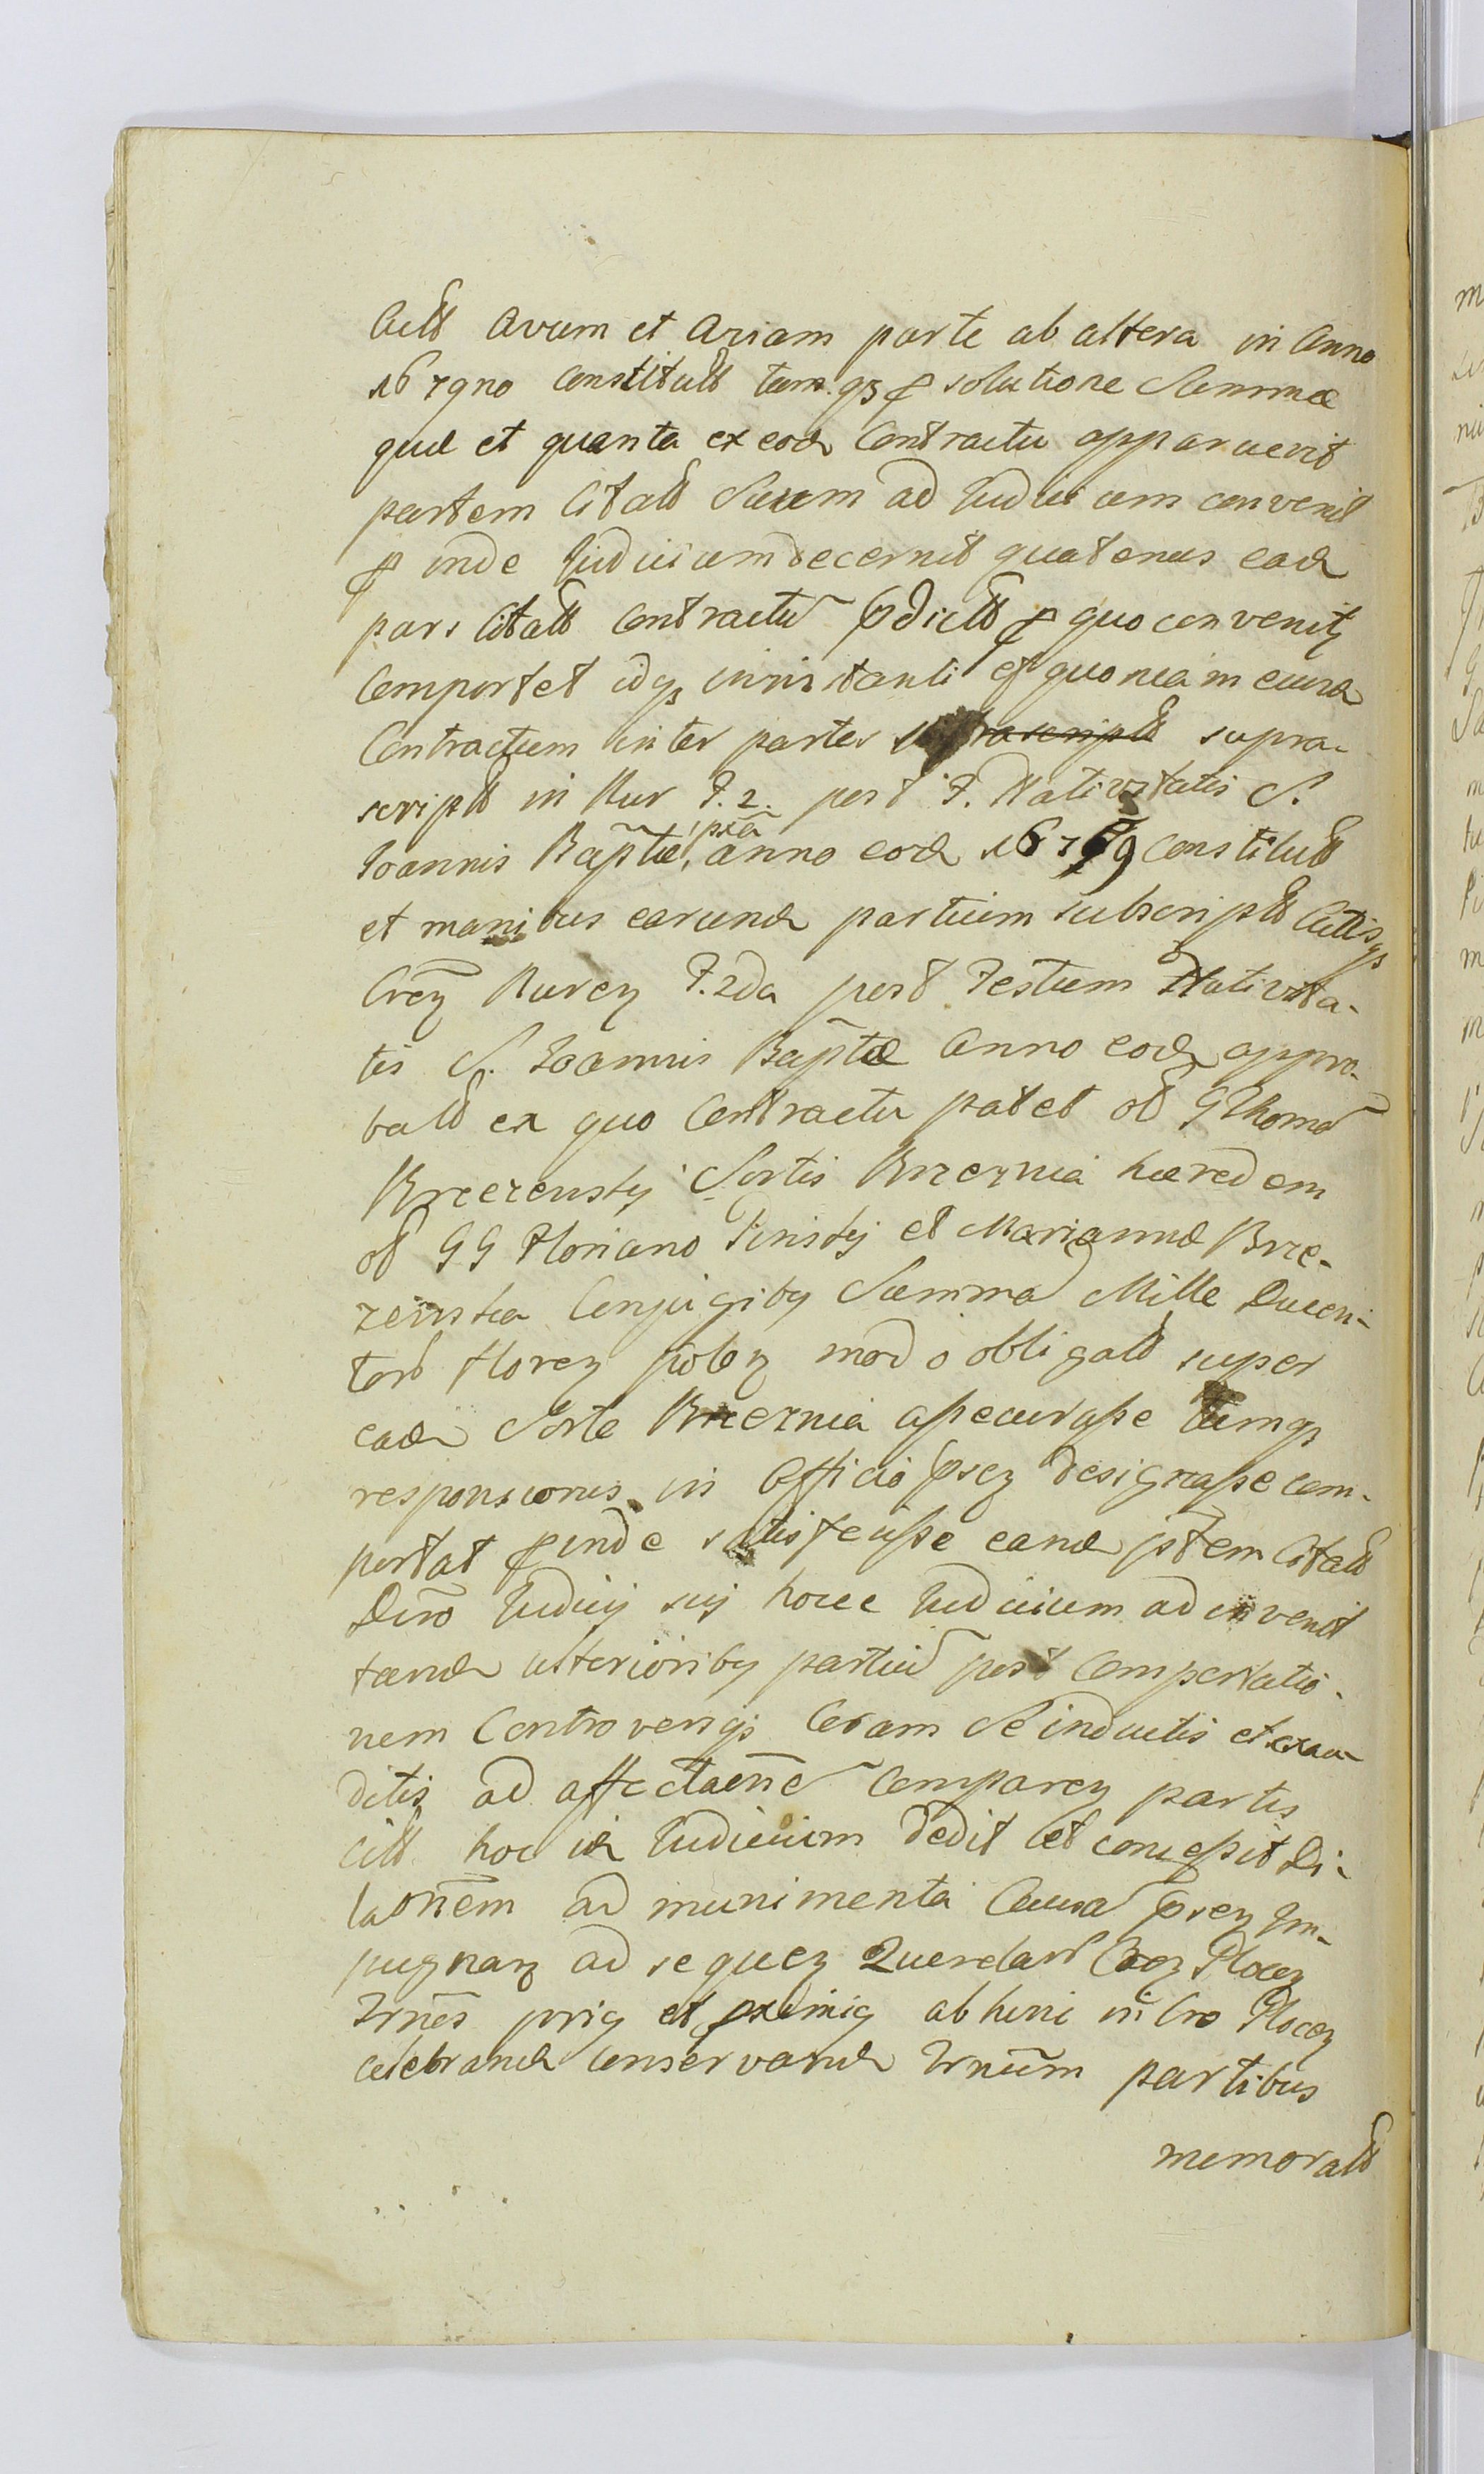 Actt Avum et Aviam parte ab altera in Anno
1679no Constitutt tamqz p solutione Summæ
quæ et quanta ex eod Contractu apparuerit
partem Citatt Suum ad Judicium convenit
p inde Judicium decernit quatenus ead
pars Citatt Contractũ pdictt p quo convenitz
Comportet idqz in instanti et quoniam eund
Contractum inter partes suprascriptt supra-
scriptt in Rur F. 2. post F. Nativitatis S.
Joannis Bapt̃æ, pxã anno eod 1679 Constitutt
et manibus earund partium subscriptt Actisqz
Crez Rurez F. 2da post Festum Nativita-
tis S. Joannis Bapt̃æ Anno eod appro-
batt ex quo Contractu patet od G Thomã
Brzezensky Sortis Brzeznia hæredem
od GG Floriano Pinisky et Mariannæ Brze-
zenska Conjugiby Summã Mille Ducen-
tor Florez polez modo obligatt super
ead Sorte Brzeznia assecurasse tumqz
responsionis in Officio psez designasse com-
portat pinde satisfecisse eand ptem Citatt
Dẽro Judicij sui hocce Judicium adinvenit
tand ulterioriby partiũ post Comportatio-
nem Controversijs Coram Se inductis et exau-
ditis ad affectaõne Comparez partis
citt hoc id Judicium dedit et concessit Di-
laõnem ad munimenta Causã psez Im-
pugnanz ad sequez Querelar Croz Plocez
Trñes prig et pximig ab hinc in Cro Plocez
celebrand conservand Trnũm partibus
memoratt